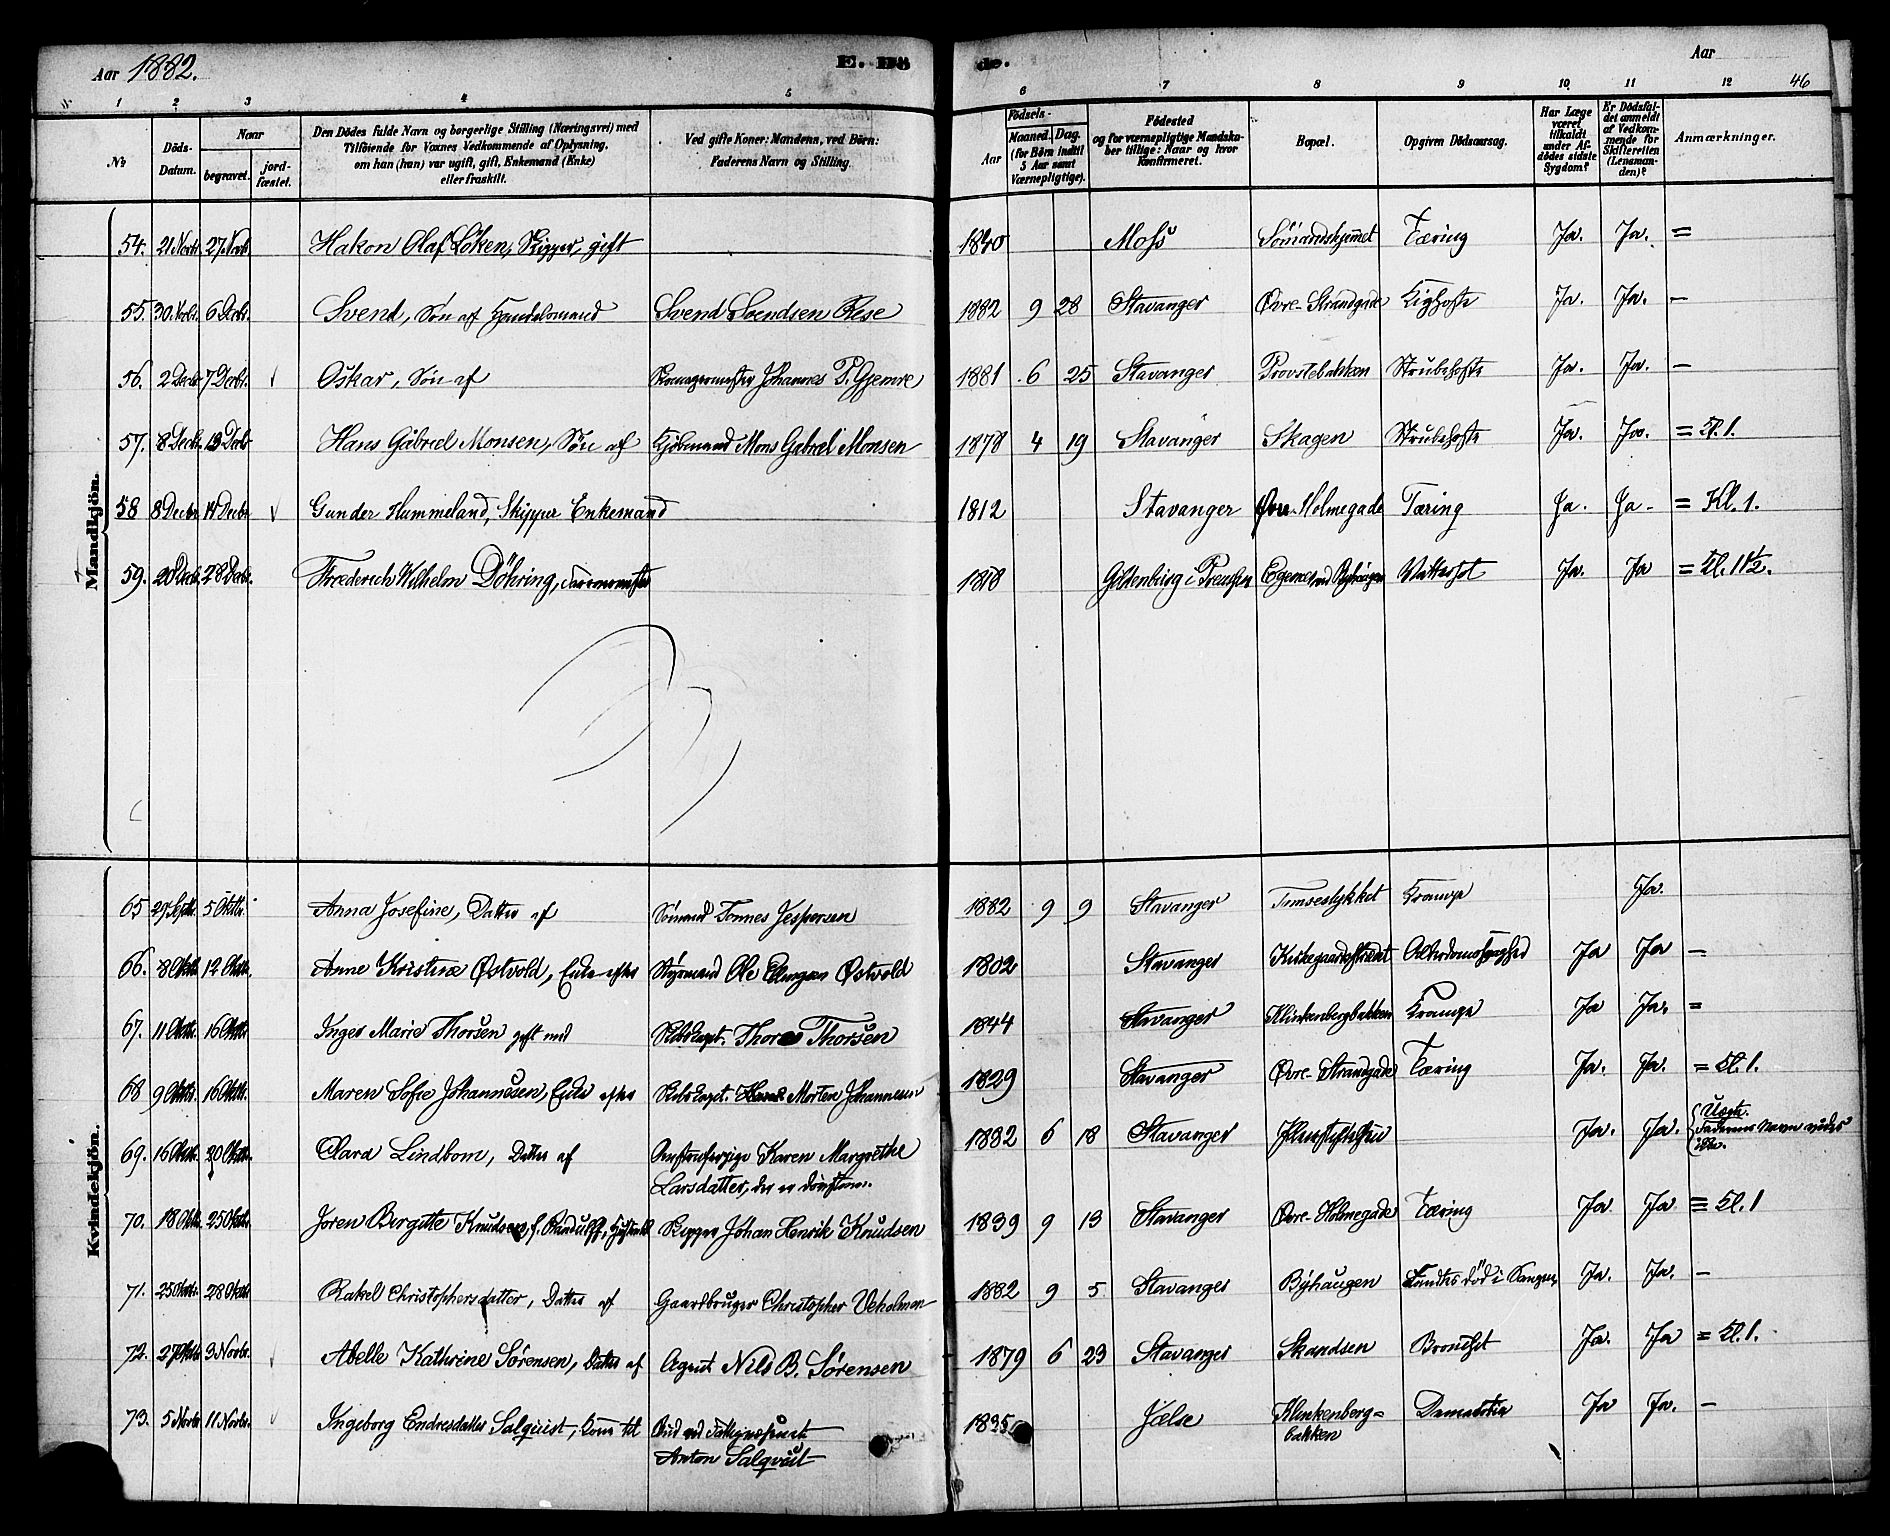 Aar 1882. E. Dö de. Aar
46
1 2 3 4 5 6 7 8 9 10 11 12
No
Döds-Datum.
Naar
begravet.
jord-fæstet.
Den Dödes fulde Navn og borgerlige Stilling (Næringsvei) med
Tilföiende for Voxnes Vedkommende af Oplysning,
om han (hun) var ugift, gift, Enkemand (Enke)
eller fraskilt.
Ved gifte Koner: Mandens, ved Börn:
Faderens Navn og Stilling.
Födsels-
Aar
Maaned. Dag.
(for Börn indtil
5 Aar samt
Værnepligtige).
Födested
og for værnepligtige Mandska-
ber tillige: Naar og hvor
Konfirmeret.
Bopæl.
Opgiven Dödsaarsag.
Har Læge
været
tilkaldt
under Af-
dödes sidste
Sygdom?
Er Dödsfal-
det anmeldt
af Vedkom-
mende for
Skifteretten
(Lensman-
den)?
Anmærkninger.
Mandkjön.
54. 21 Novbr. 27 Novbr. Hakon Olaf Løken, Skipper, gift 1840 Moss Sömandshjemmet Tæring Ja. Ja. =
55. 30 Novbr. 6 Decbr. Svend, Søn af Handelsmand Svend Svendsen Rese 1882 9 28 Stavanger Øvre-Strandgade Kighoste Ja. Ja. -
56. 2 Decbr. 7 Decbr. Oskar, Søn af Skomagermester Johannes P. Gjemre 1881 6 25 Stavanger Provstebakken Strubehoste Ja. Ja. -
57. 8 Decbr. 13 Decbr. Hans Gabriel Monsen, Søn af Kjöbmand Mons Gabriel Monsen 1878 4 19 Stavanger Skagen Strubehoste Ja. Ja. = Kl. 1.
58 8 Decbr. 14 Decbr. Gunder Hummeland, Skipper Enkemand 1812 Stavanger Øvre Holmegade Tæring Ja. Ja- = Kl. 1.
59. 20 Decbr. 28 Decbr. Fræderich Wilhelm Döhring, 1818 i Preussen Egenes ved Byhaugen Vattersot Ja. Ja = Kl. 1 1/2.
Kvindekjön.
65 29 Septbr. 5 Oktbr. Anna Josefine, Datter af Sømand Tonnes Jespersen 1882 9 9 Stavanger Krampe Ja.
66. 8 Oktbr. 12 Oktbr. Anne Kristine Østvold, Enke efter Styrmand Ole Østvold 1802 Stavanger Kirkegaardsstrædet Alderdomssvaghed Ja Ja -
67. 11 Oktbr. 16 Oktbr. Inger Marie Thorsen gift med Skibskapt. Thor Thorsen 1844 Stavanger Klinkenbergbakken Krampe Ja Ja. =
68 9 Oktbr. 16 Oktbr. Maren Sofie Johannesen, Enke efter Skibskapt. Morten Johannesen 1829 Stavanger Øvre-Strandgade Tæring Ja. Ja. = Kl. 1.
69. 16 Oktbr. 20 Oktbr. Clara Lindbom, Datter af Karen Margrethe
Larsdatter, der er 1882 6 18 Stavanger Ja. Ja. Uægte.
Faderens Navn vides
ikke.
70. 18 Oktbr. 25 Oktbr. Joren Birgitte Knudsen, f. Randulff, Skipper Johan Henrik Knudsen 1839 9 13 Stavanger Øvre-Holmegade Tæring Ja Ja = Kl. 1
71. 25 Oktbr. 28 Oktbr. Rakel Christophersdatter, Datter af Gaardbruger Christopher Veholmen 1882 9 5 Stavanger Byhaugen Fandtes död i Sengen Ja. Ja. -
72. 27 Oktbr. 3 Novbr. Abelle Kathrine Sørensen, Datter af Agent Nils B. Sørensen 1879 6 23 Stavanger Skandsen Bronchit Ja. Ja = Kl. 1.
73. 5 Novbr. 11 Novbr. Ingeborg Endresdatter Salquist, Kone til Bud ved
Anton Salquist 1835 Jælse Klinkenberg=
bakken Ja Ja. -